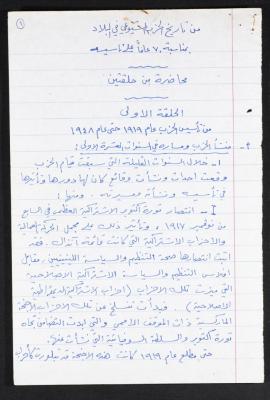 ١
من تاريخ الحزب الشيوعي في البلاد
بمناسبة ٧٠ عاماً على تأسيسه
محاضرة من حلقتين
الحلقة الأولى
من تأسيس الحزب عام ١٩١٩ حتى عام ١٩٤٨
منشأ الحزب ومساره في السنوات العشرة الأولى:
١- خلال السنوات القليلة التي سبقت قيام الحزب
وقعت احداث ونشأت وقائع كان لها دورها وتأثيرها
في تأسيسه ونشأته ومسيرته. ومنها:
I - انتصار ثورة اكتوبر الاشتراكية العظمى في السابع
من نوفمبر ١٩١٧، وتأثير ذلك على مجمل الحركة العمالية
والاحزاب الاشتراكية التي كانت قائمة آنذاك. فقد
اثبت انتصارها صحة التنظيم والسياسة اللينينيين، مقابل
افلاس التنظيم والسياسة الاشتراكية الاصلاحية
التي ميزت تلك الاحزاب (احزاب الاشتراكية الديمقراطية
الاصلاحية). فبدأت تنسلخ عن تلك الاحزاب الاجنحة
الماركسية ذات الموقف الاممي والتي ابدت التضامن تجاه
ثورة اكتوبر والسلطة السوفياتية التي نشأت عنها.
حتى مطلع عام ١٩١٩ كانت هذه الاجنحة قد تبلورت كأحزاب